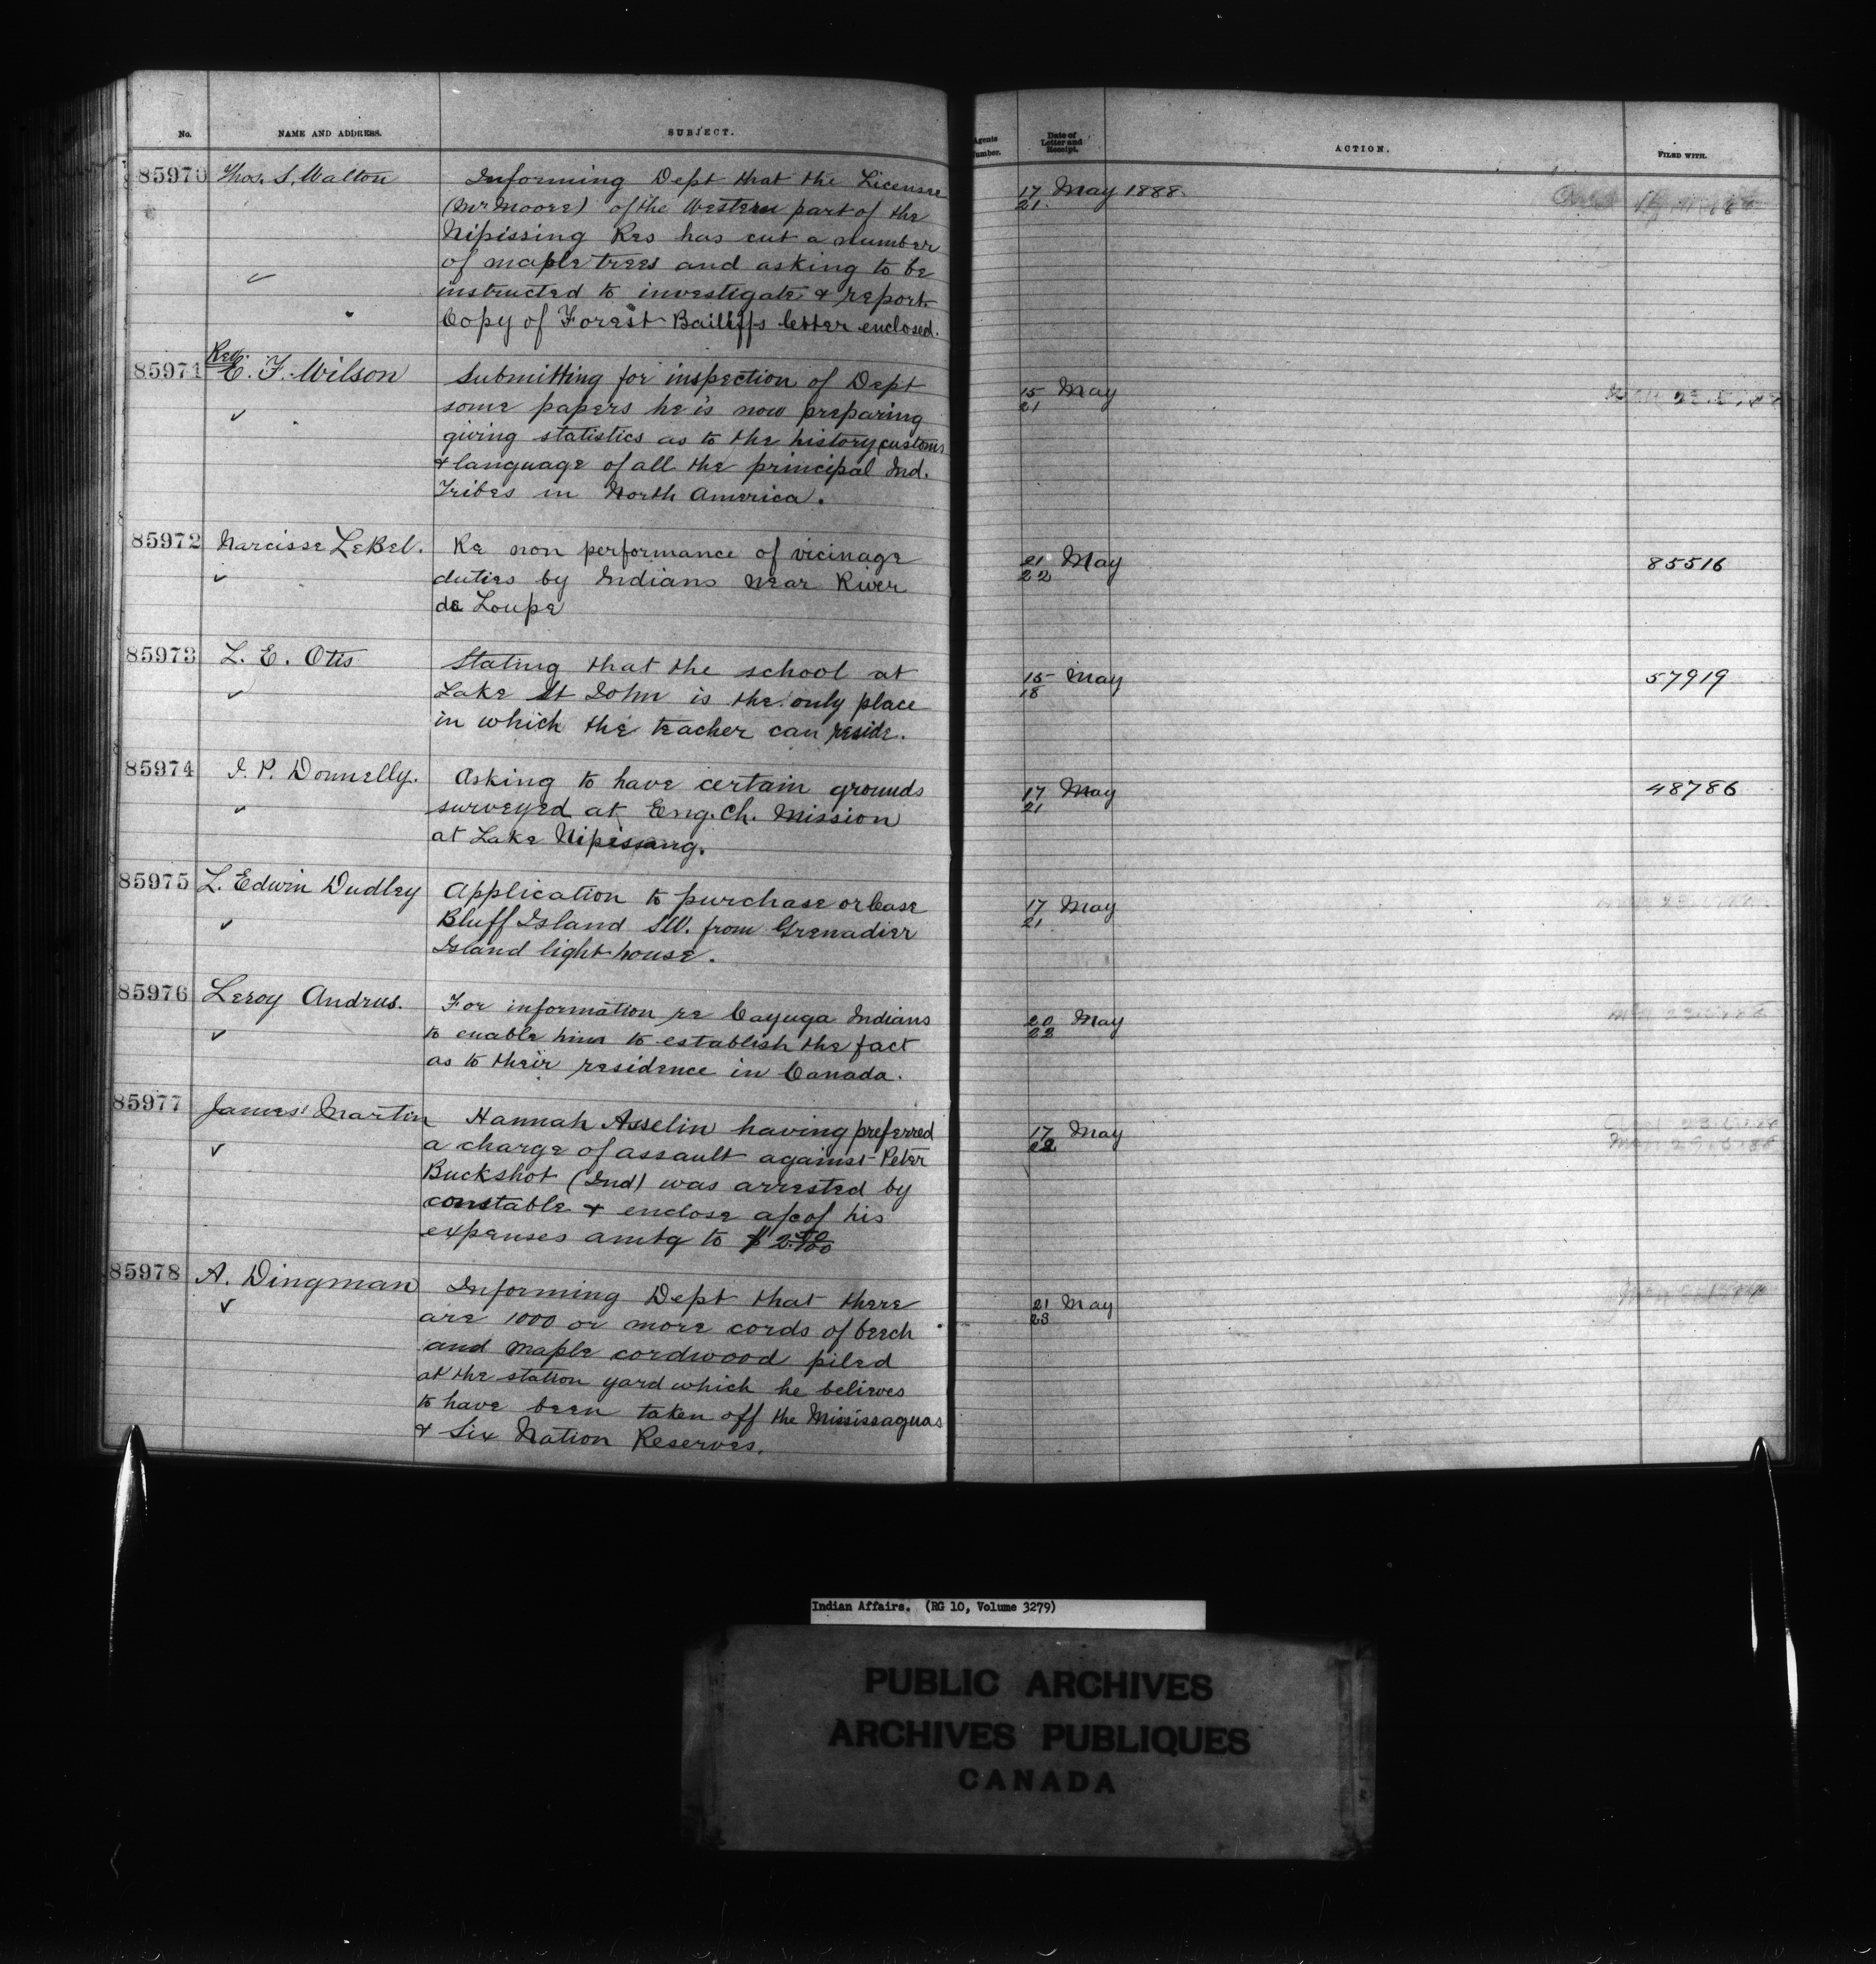 No. NAME AND ADDRESS. SUBJECT.
85970 Thos. S. Walton Informing Dept that the Licensee
(Mr Moore) of the Western part of the
Nipissing Res has cut a number
of maple trees and asking to be
instructed to investigate & report.
Copy of Forest Bailiffs letter enclosed.
Rev.
85971 E. F. Wilson Submitting for inspection of Dept
some papers he is now preparing
giving statistics as to the history, customs
& language of all the principal Ind.
Tribes in North America.
85972 Narcisse LeBel. Re non performance of vicinage
duties by Indians near River
de Loupe
85973 L. E. Otis Stating that the school at
Lake St John is the only place
in which the teacher can reside.
85974 J. P. Donnelly. Asking to have certain grounds
surveyed at Eng. Ch. Mission
at Lake Nipissing.
85975 L. Edwin Dudley Application to purchase or lease
Bluff Island SW. from Grenadier
Island light house.
85976 Leroy Andrus. For information re Cayuga Indians
to enable him to establish the fact
as to their residence in Canada.
85977 James Martin Hannah Asselin having preferred
a charge of assault against Peter
Buckshot (Ind) was arrested by
constable & enclose a/c of his
expenses amtg to $2.
85978 A. Dingman Informing Dept that there
are 1000 or more cords of beech
and maple cordwood piled
at the station yard which he believes
to have been taken off the Mississaguas
& Six Nation Reserves.
Agents Number. Date of Letter and Receipt. ACTION. FILED WITH.
17 May 1888.
21.
15 May
21
21 May 85516
22
15 May 57919
18
17 May 48786
21
17 May
21
20 May
22
17 May
22
21 May
23
Indian Affairs. (RG 10, Volume 3279)
PUBLIC ARCHIVES
ARCHIVES PUBLIQUES
CANADA